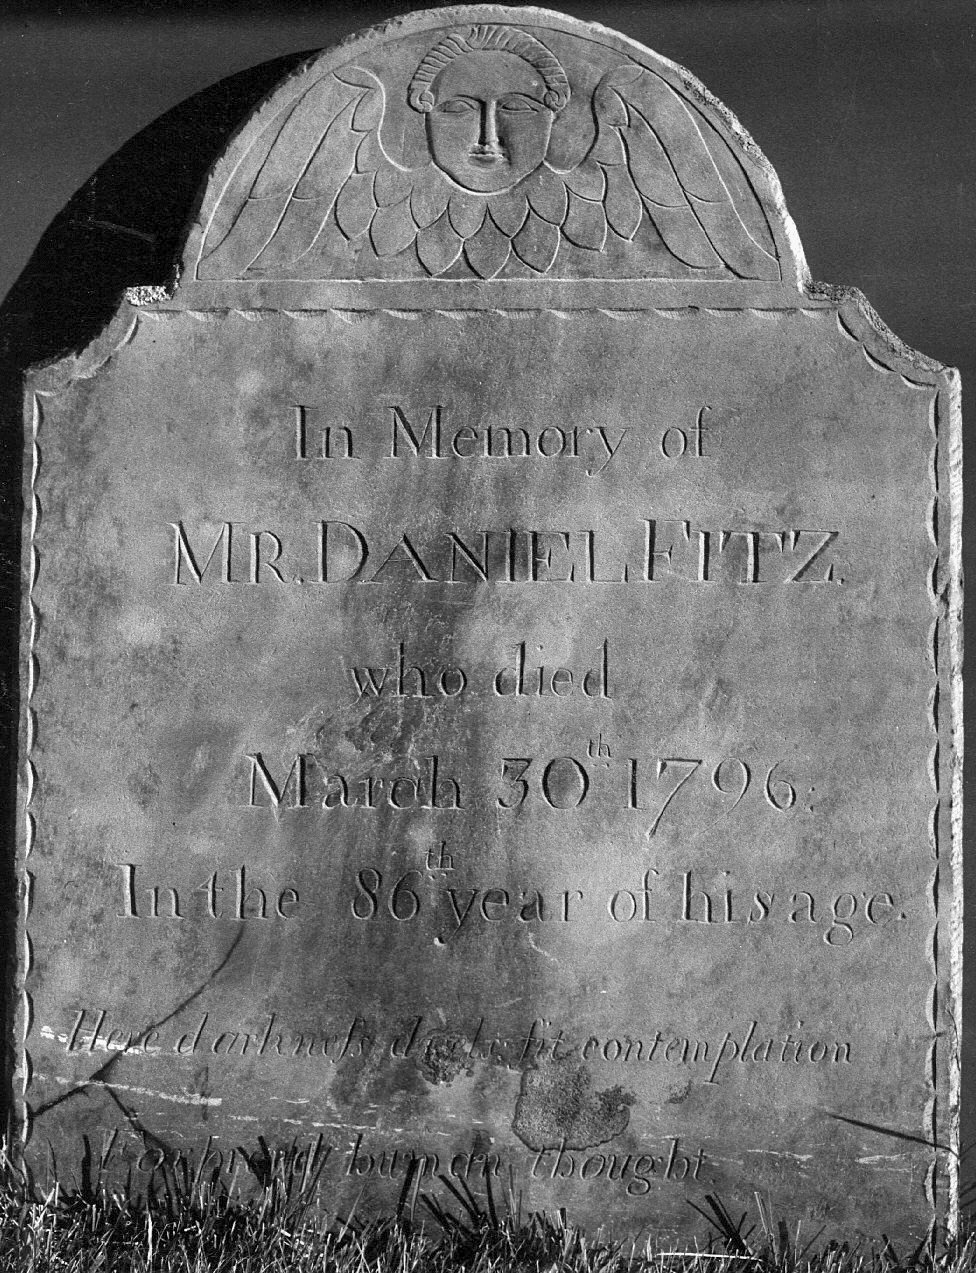 In Memory of
MR. DANIEL FITZ.
who died
March 30th 1796:
In the 86th year of his age.
Here darkneſs dwels fit contemplation
Forbiid human thought